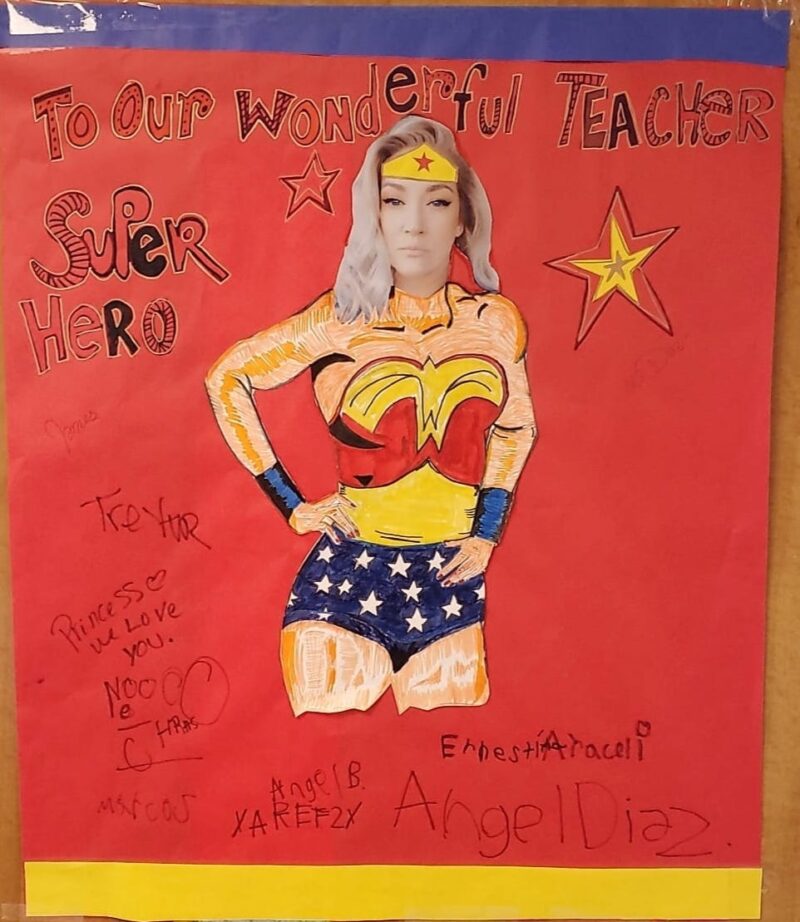 To Our Wonderful TEACHER
SuPer
HeRO
James
Trevor
Princess
we Love
you.
Angel B.
XAREF2X
Marcos
Ernesti
Araceli
Angel Diaz.